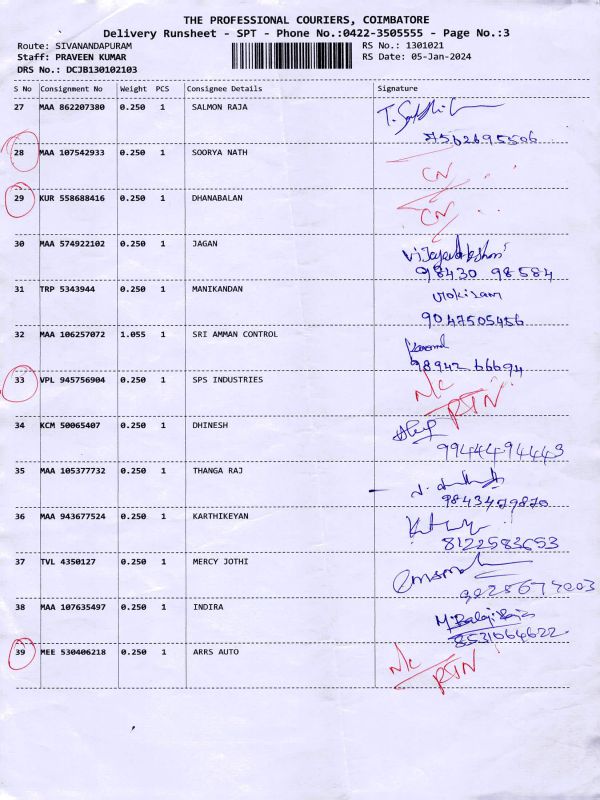 THE PROFESSIONAL COURIERS, COIMBATORE
Delivery Runsheet - SPT - Phone No.:0422-3505555 - Page No.:3
Route: SIVANANDAPURAM RS No.: 1301021
Staff: PRAVEEN KUMAR RS Date: 05-Jan-2024
DRS No.: DCJB130102103
S No Consignment No Weight PCS Consignee Details Signature
27 MAA 862207380 0.250 1 SALMON RAJA
7502695506
28 MAA 107542933 0.250 1 SOORYA NATH CN
29 KUR 558688416 0.250 1 DHANABALAN CN
30 MAA 574922102 0.250 1 JAGAN
98430 98584
31 TRP 5343944 0.250 1 MANIKANDAN
9047505456
32 MAA 106257072 1.055 1 SRI AMMAN CONTROL
98942 66694
33 VPL 945756904 0.250 1 SPS INDUSTRIES N/C
RTN
34 KCM 50065407 0.250 1 DHINESH
9944494443
35 MAA 105377732 0.250 1 THANGA RAJ
9843479870
36 MAA 943677524 0.250 1 KARTHIKEYAN
8122583653
37 TVL 4350127 0.250 1 MERCY JOTHI
38 MAA 107635497 0.250 1 INDIRA M. Balaji Raja
8531064622
39 MEE 530406218 0.250 1 ARRS AUTO N/C
RTN